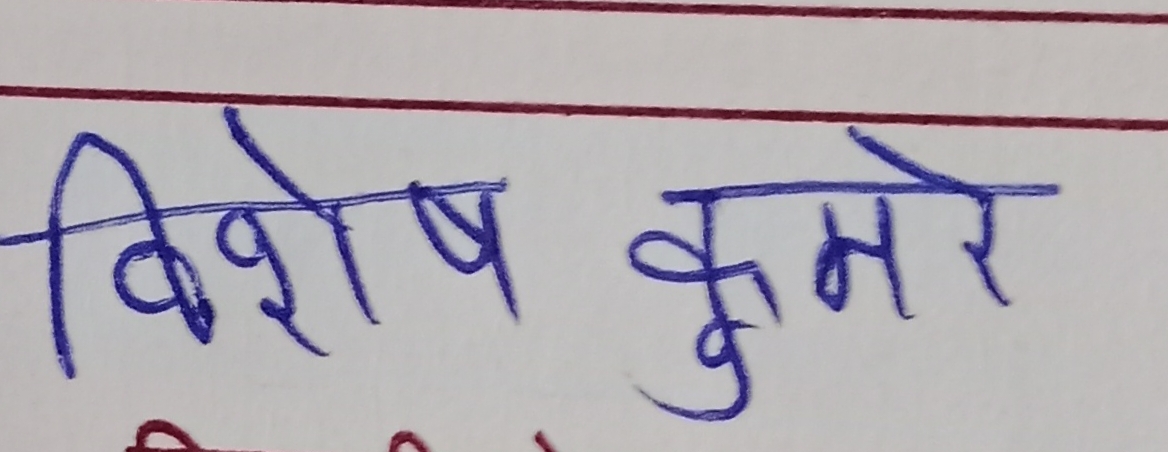 विशेष कुमरे